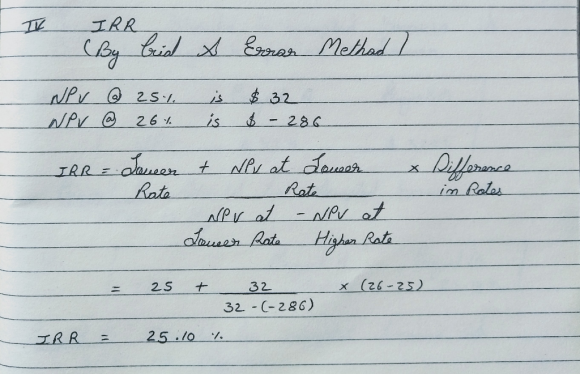 IV IRR
(By Trial & Error Method)
NPV @ 25% is $ 32
NPV @ 26% is $ -286
IRR = Lower + NPV at Lower × Difference
Rate Rate in Rates
NPV at - NPV at
Lower Rate Higher Rate
= 25 + 32 × (26-25)
32-(-286)
IRR = 25.10 %